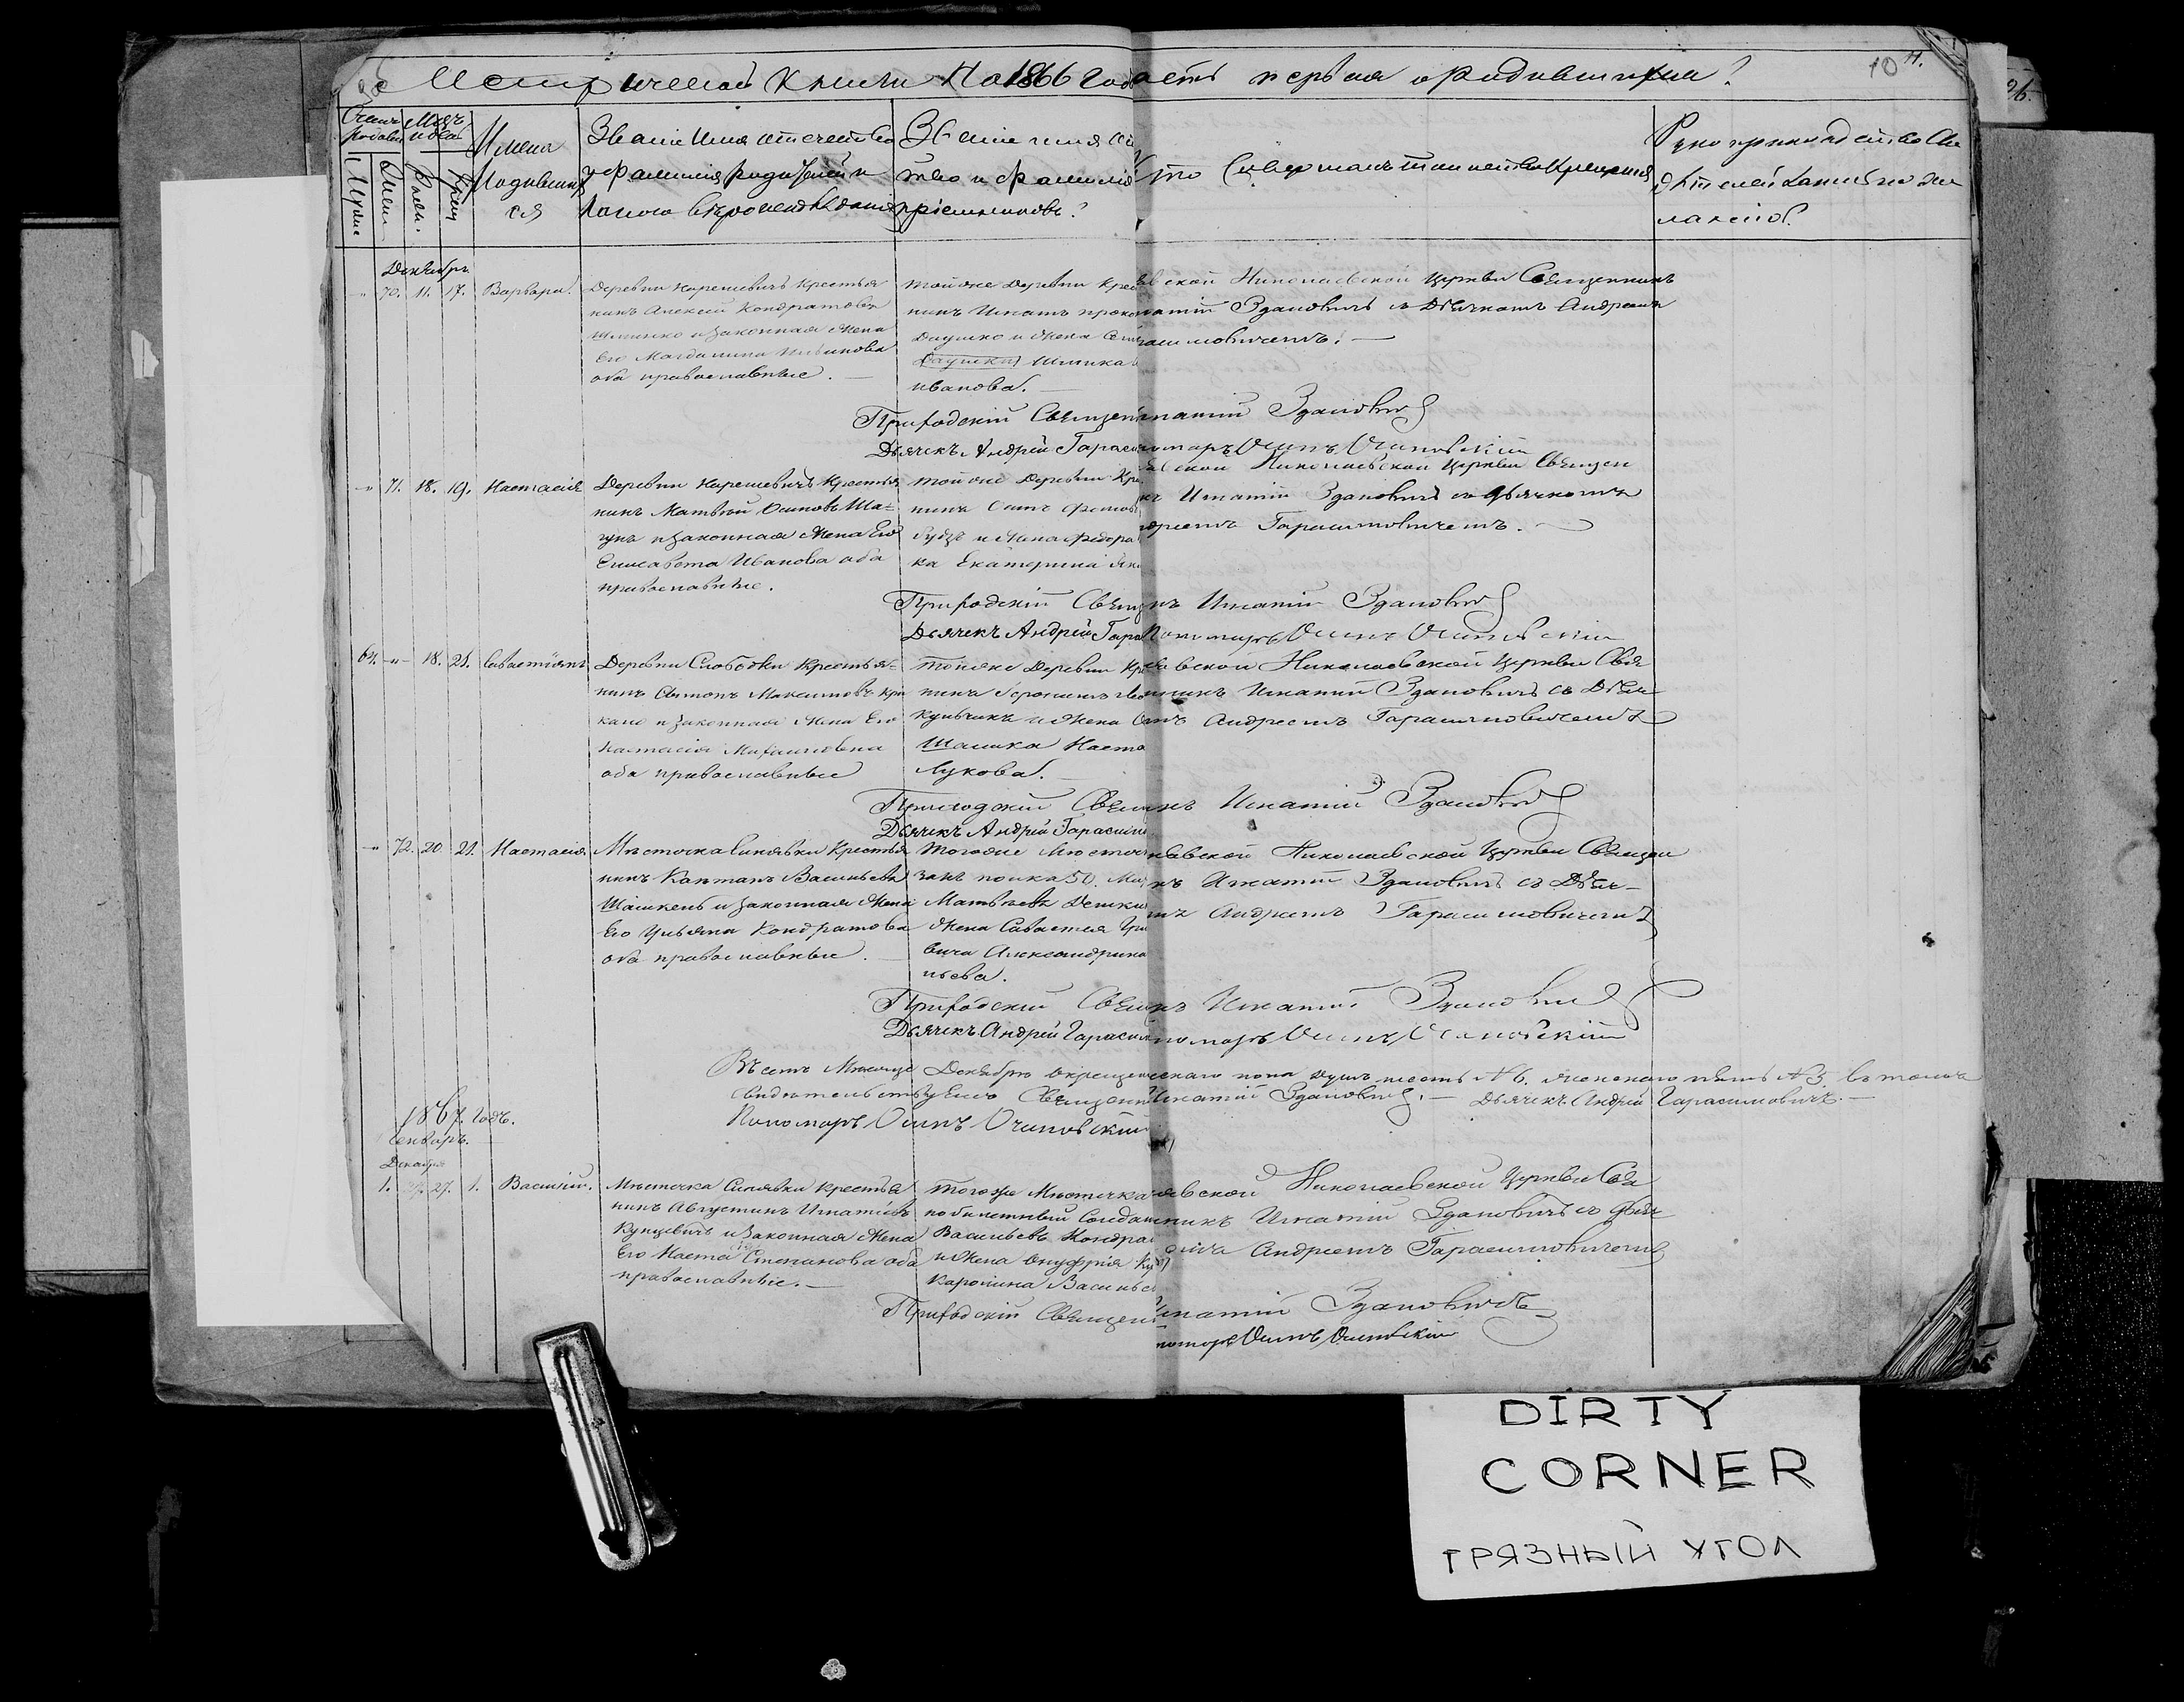 Метрической Книги На 1866 годъ часть первая о Родившихся?
10
26.
Счетъ родивш Мѣсяцъ и день
Мужс Женс Рожд. Крещ
Имена Родившихся
Званіе Имя отечество и фамилія родителей и какого вѣроисповѣданія
Званіе имя отчество и фамилія пріемниковъ?
Кто Совершалъ таинство Крещенія
Рукоприкладство Свидѣтелей записи по желанію?
Декабрь
" 70. 11. 17. Варвара.
Деревни Нарешевичь Крестья
нинъ Алексѣй Кондратовъ
и законная Жена
Его Магдалина Иванова
оба православные.
тойже Деревни Крес
нинъ Игнатъ
Даушко и Жена
Иванова.
вской Николаевской Церкви Священникъ
натій Здановичь съ Дьячкомъ Андреемъ
расимовичемъ.
Приходскій Священ натій Здановичь
Дьячекъ Андрей Гарасим номарь Осипъ
" 71. 18. 19. Настасія
Деревни Нарешевичь Крестья
нинъ Матвѣй Осиповъ Ша=
гунъ и законная Жена Его
Елисавета Иванова оба
православные.
той же Деревни Кре
нинъ Осипъ
и Жена Федора
ка Екатерина
вской Николаевской Церкви Священ
къ Игнатій Здановичь съ дьячкомъ
дреемъ Гарасимовичемъ.
Приходскій Свящ къ Игнатій Здановичь
Дьячекъ Андрей Гара Пономарь Осипъ
64. " 18. 21. Севастіянъ
Деревни Слободки Крестья=
нинъ Антонъ Максимовъ
и законная Жена Его
Настасія Михайловна
оба православные
тойже Деревни Кр
нинъ Геронимъ
и Жена
Шашка Наста
Лукова.
вской Николаевской Церкви Свя
нникъ Игнатій Здановичь съ Дьяч
мъ Андреемъ Гарасимовичемъ
Приходскій Священ къ Игнатій Здановичь
Дьячекъ Андрей Гарасим
" 72. 20. 21. Настасія
Мѣстечка Синявки Крестья
нинъ Каптанъ Васильевъ
Шашкень и законная Жена
Его Ульяна Кондратова
оба православные.
тогоже Мѣстеч
полка 50.
Матвѣевъ
Жена Саваст
вича Александрина
ньева.
вской Николаевской Церкви Священ
къ Игнатій Здановичь съ Дьяч-
мъ Андреемъ Гарасимовичемъ
Приходскій Свящ къ Игнатій Здановичь
Дьячекъ Андрей Гарасим номарь Осипъ
Въ семъ Мѣсяцѣ Декабрѣ окрещено ескаго пола душъ шесть №6. женскаго пять №5. въ томъ
свидѣтельствуемъ Священ Игнатій Здановичь. — Дьячекъ Андрей Гарасимовичь. —
Пономарь Осипъ
1867. Годъ.
Генварь.
Декабря
1. 27. 1. Василій.
Мѣстечка Синявки крестья
нинъ Августинъ Игнатьевъ
Кунцевичь и законная Жена
Его Наста Степанова оба
православные. —
тогоже Мѣстечка
побилетный Солда
Васильевъ Кондра
и Жена Онуфрія
Каролина Василье
явской Николаевской Церкви Свя
нникъ Игнатій Здановичь съ дьяч
омъ Андреемъ Гарасимовичемъ
Приходскій Священ гнатій Здановичь
номарь Осипъ
DIRTY
CORNER
ГРЯЗНЫЙ УГОЛ